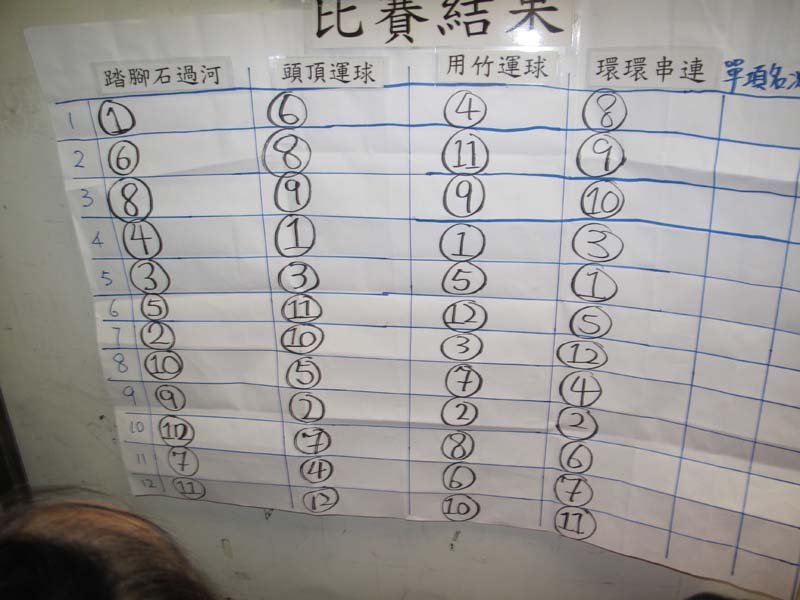 比賽結果
踏腳石過河 頭頂運球 用竹運球 環環串連 單項名次
1 1 6 4 8
2 6 8 11 9
3 8 9 9 10
4 4 1 1 3
5 3 3 5 1
6 5 11 12 5
7 2 10 3 12
8 10 5 7 4
9 9 2 2 2
10 12 7 8 6
11 7 4 6 7
12 11 12 10 11